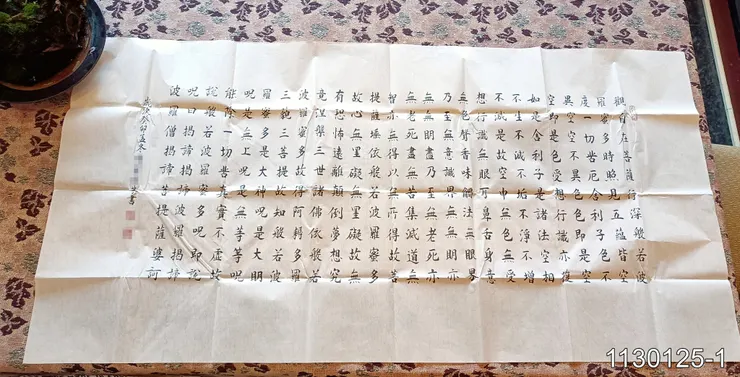 觀自在菩薩行深般若波
羅蜜多時照見五蘊皆空
度一切苦厄舍利子色不
異空空不異色色即是空
空即是色受想行識亦復
如是舍利子是諸法空相
不生不滅不垢不淨不增
不減是故空中無色無受
想行識無眼耳鼻舌身意
無色聲香味觸法無眼界
乃至無意識界無無明亦
無無明盡乃至無老死亦
無老死盡無苦集滅道無
智亦無得以無所得故菩
提薩埵依般若波羅蜜多
故心無罣礙無罣礙故無
有恐怖遠離顛倒夢想究
竟涅槃三世諸佛依般若
波羅蜜多故得阿耨多羅
三藐三菩提故知般若波
羅蜜多是大神呪是大明
呪是無上呪是無等等呪
能除一切苦真實不虛故
說般若波羅蜜多呪即說
呪曰揭諦揭諦波羅揭諦
波羅僧揭諦菩提薩婆訶
歲次癸卯孟冬 書
1130125-1